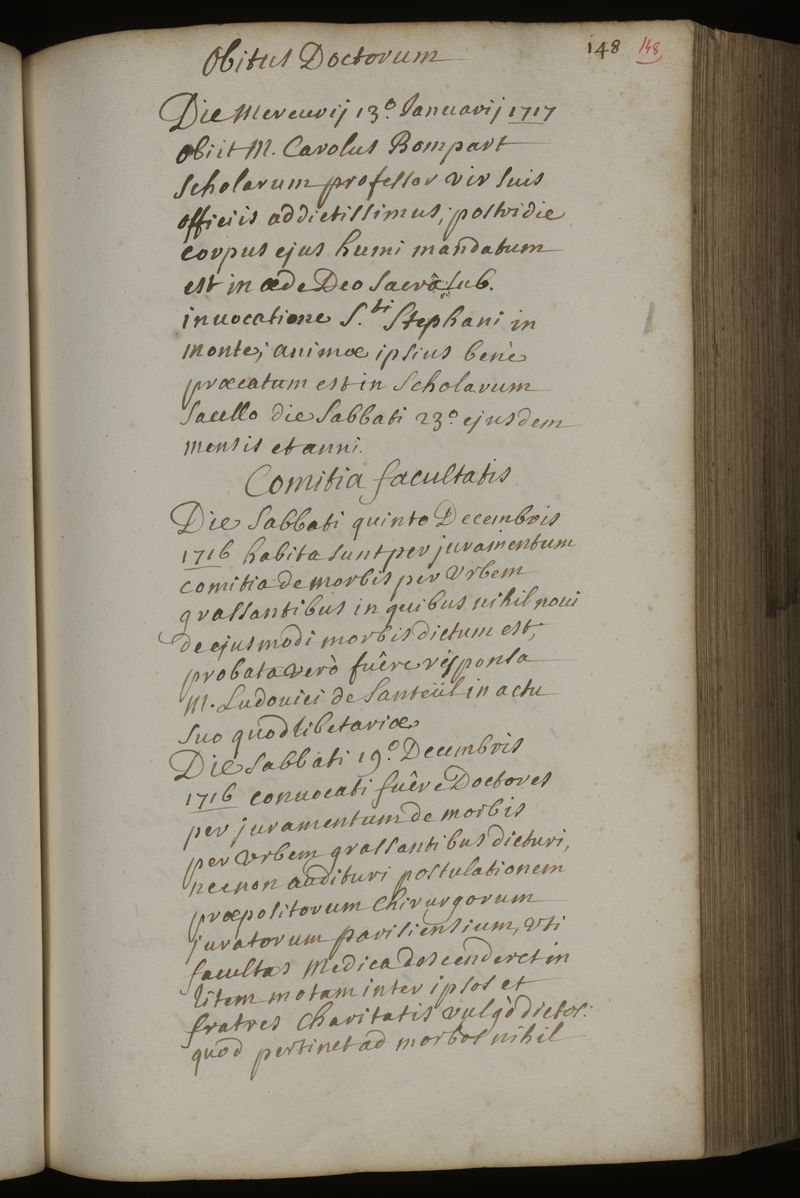 Obitus Doctorum
148 148
Die Mercurij 13.° Januarij 1717
obiit M. Carolus Bompart
scholarum professor vir suis
officiis addictissimus; postridie
corpus ejus humi mandatum
est in æde Deo sacrâ sub.
invocatione S.ti Stephani in
monte; animæ ipsius benè
præcatum est in Scholarum
sacello die Sabbati 23.° ejusdem
mensis et anni.
Comitia facultatis
Die Sabbati quinto Decembris
1716 habita sunt per juramentum
comitia de morbis per Urbem
grassantibus in quibus nihil noui
de ejusmodi morbis dictum est;
probata verò fuêre responsa
M. Ludouici de Santeüil in actu
suo quodlibetariæ
Die Sabbati 19.° Decembris
1716 conuocati fuêre Doctores
per juramentum de morbis
per Urbem grassantibus dicturi,
necnon audituri postulationem
præpositorum Chirurgorum
juratorum parisiensium, Vti
facultas Medica descenderet in
litem motam inter ipsos et
fratres Charitatis vulgò dictos:
quod pertinet ad morbos nihil